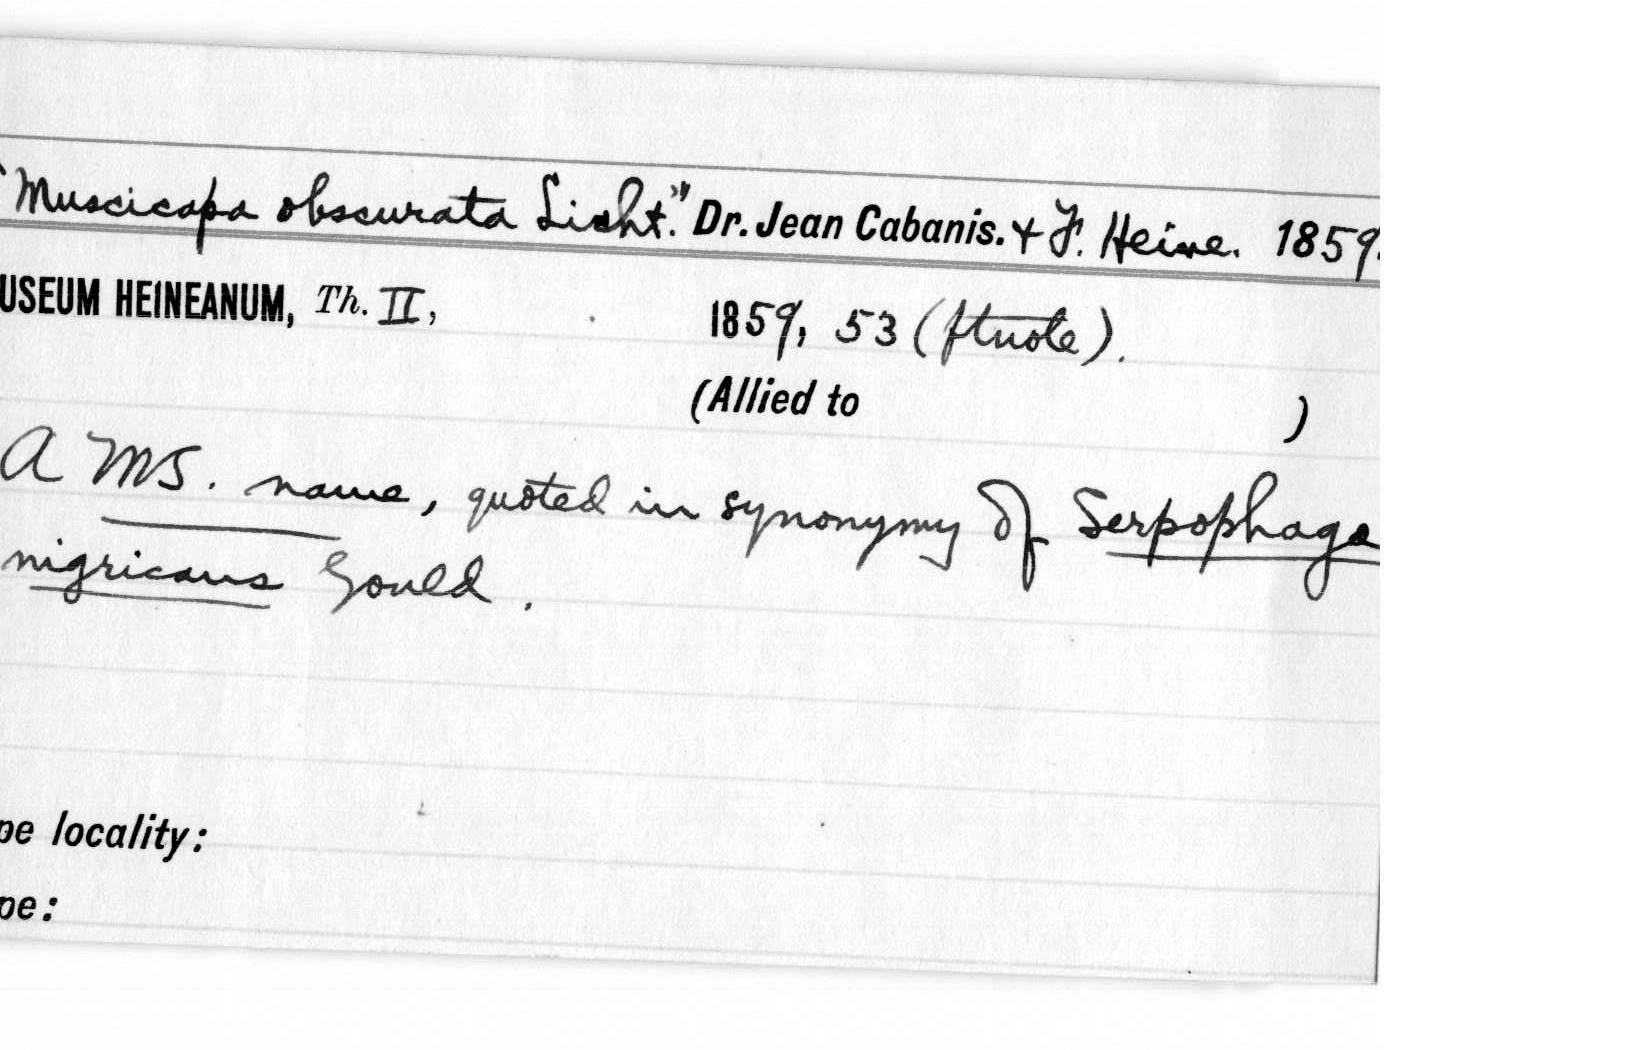 "Muscicapa obscurata Licht." Dr. Jean Cabanis. + F. Heine. 1859.
USEUM HEINEANUM, Th. II, 1859, 53 (ftnote).
(Allied to )
A MS. name, quoted in synonymy of Serpophaga
nigricans Gould.
pe locality:
pe: